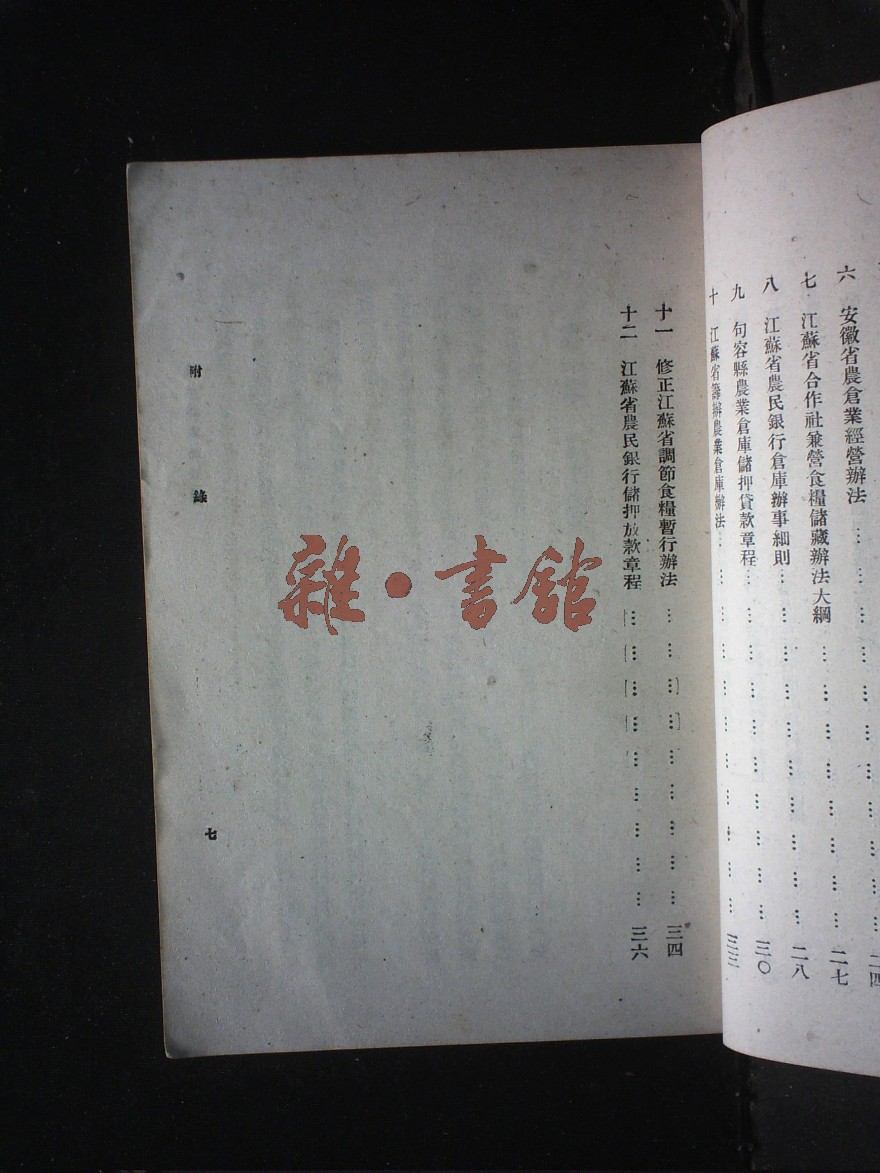 六 安徽省農倉業經營辦法 ……………………… 二四
七 江蘇省合作社兼營食糧儲藏辦法大綱 ……………………… 二七
八 江蘇省農民銀行倉庫辦事細則 ……………………… 二八
九 句容縣農業倉庫儲押貸款章程 ……………………… 三〇
十 江蘇省籌辦農業倉庫辦法 ……………………… 三三
十一 修正江蘇省調節食糧暫行辦法 ……………………… 三四
十二 江蘇省農民銀行儲押放款章程 ……………………… 三六
附錄 七
雜•書館